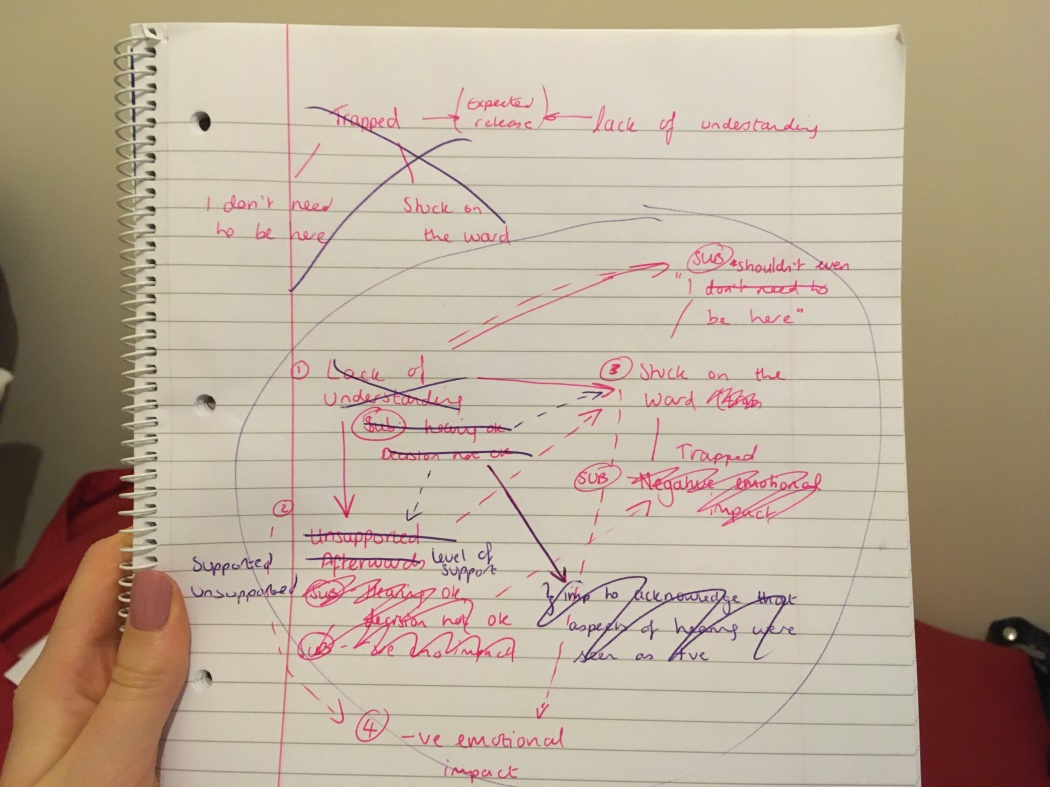 Trapped → (Expected release) ← lack of undestanding
I don't need
to be here
Stuck on
the ward
SUB *shouldn't even
"I don't need to
be here"
① Lack of
Understanding
Sub: hearing ok
Decision not ok
③ Stuck on the
ward
Trapped
SUB Negative emotional
impact
②
Unsupported
Afterwards level of
support
Supported
unsupported
Sub Hearing ok
decision not ok
Sub - -ve emo impact
} imp to acknowledge that
aspects of hearing were
seen as +ve
④ -ve emotional
impact